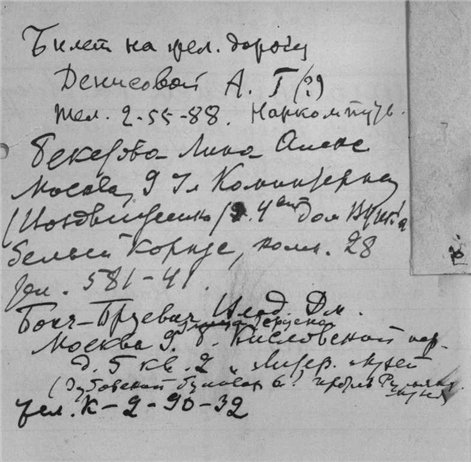 Билет на жел. дорогу
Денисовой А. Г (?)
тел. 2-55-88. Наркомпуть.
Бекерова Лина Алекс
Москва, 9 Ул Коминтерна
(Воздвиженка) 4ый Дом ВЦИК'а
белый корпус, комн. 28
тел. 581-41.
Бонч-Бруевич Влад. Дм.
Москва 9. Б. Кисловский пер.
д. 5 кв. 2 Литер. музей
(Зубовский бульвар
тел. К-2-90-32